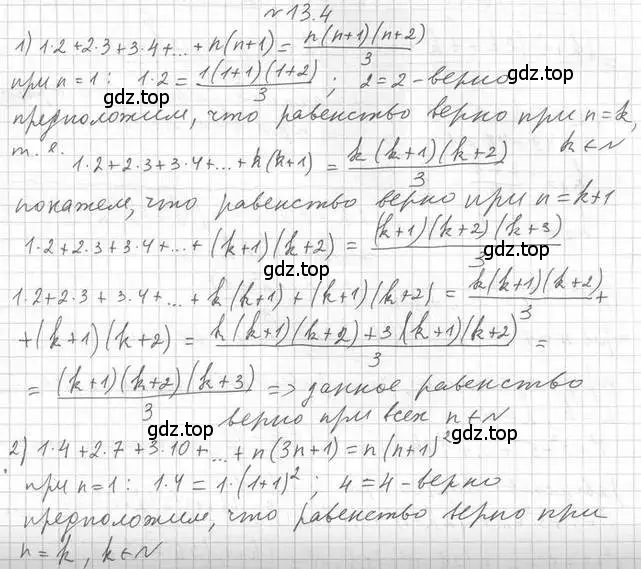 №13.4
1) 1·2+2·3+3·4+...+n(n+1)= n(n+1)(n+2)/3
при n=1: 1·2= 1(1+1)(1+2)/3; 2=2-верно
gdz.top gdz.top
предположим, что равенство верно при n=k,
т.е. 1·2+2·3+3·4+...+k(k+1) = k(k+1)(k+2)/3 k∈N
покажем, что равенство верно при n=k+1
1·2+2·3+3·4+...+(k+1)(k+2) = (k+1)(k+2)(k+3)/3
gdz.top
1·2+2·3+3·4+...+k(k+1)+(k+1)(k+2) = k(k+1)(k+2)/3 +
+(k+1)(k+2) = k(k+1)(k+2)+3(k+1)(k+2)/3 =
= (k+1)(k+2)(k+3)/3 => данное равенство
верно при всех n∈N
gdz.top gdz.top
2) 1·4+2·7+3·10+...+n(3n+1)=n(n+1)²
при n=1: 1·4=1·(1+1)²; 4=4-верно
предположим, что равенство верно при
gdz.top
n=k, k∈N